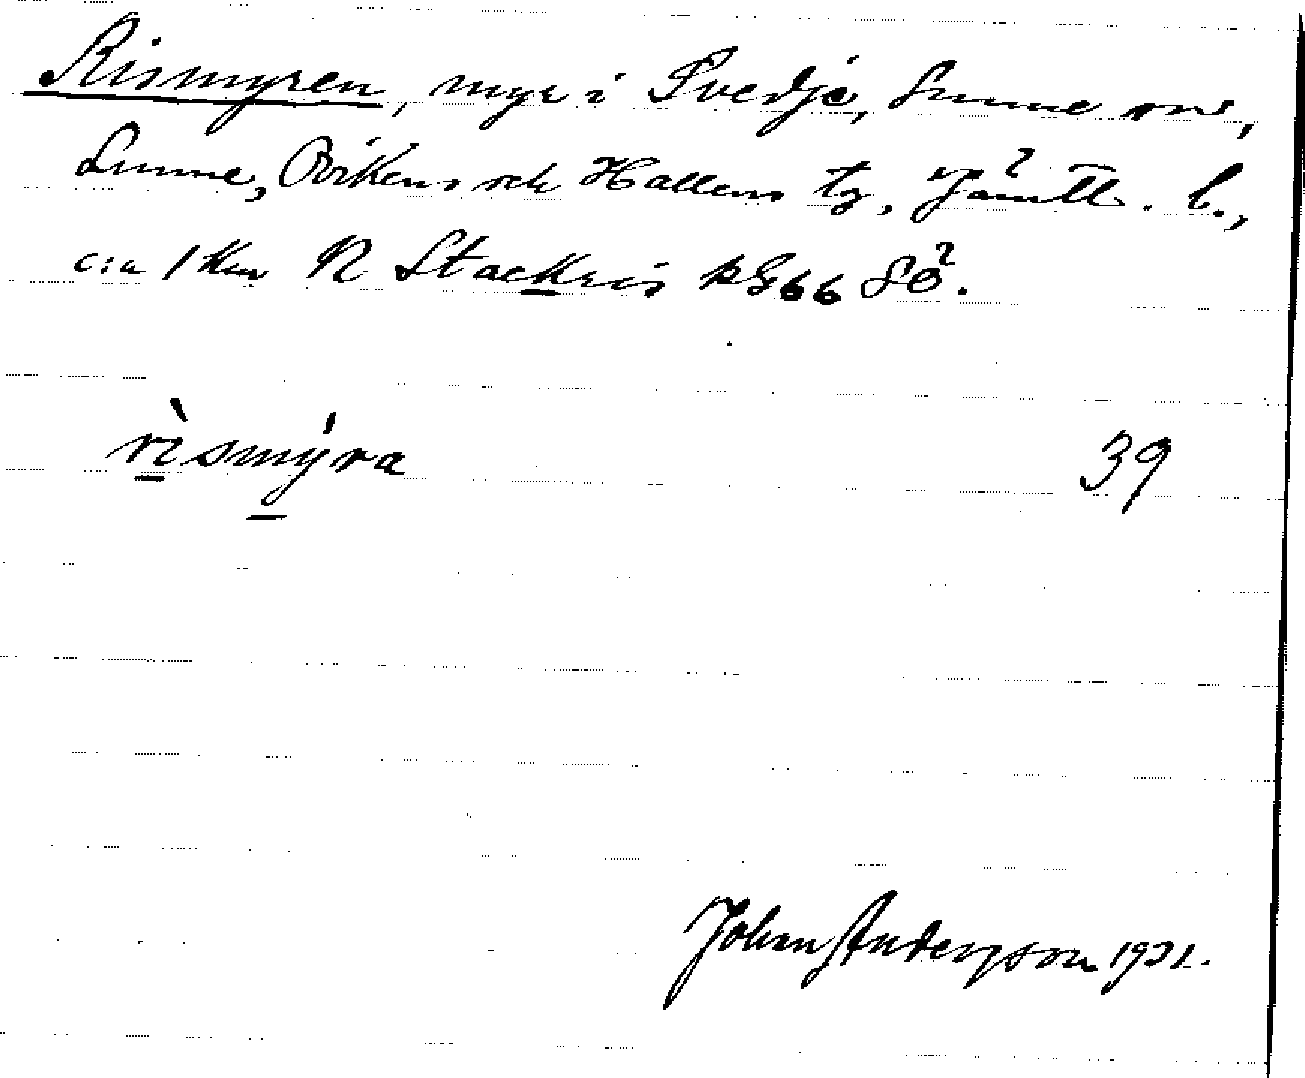 Rismyren, myr i Svedje, Sunne sn,
Sunne, Ovikens och Hallens tg, Jämtl. l.,
c:a 1 km N Stackris kg 66 SÖ.
rismýra 39
Johan Andersson 1931.